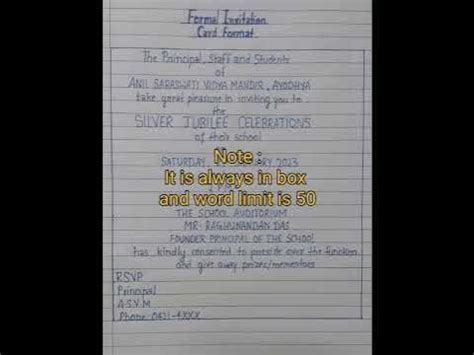 Formal Invitation
Card Format
The Principal, Staff and Students
of
ANIL SARASWATI VIDYA MANDIR, AYODHYA
take great pleasure in inviting you to
the
SILVER JUBILEE CELEBRATIONS
of their school
SATURDAY, 2023
Note :
It is always in box
and word limit is 50
THE SCHOOL AUDITORIUM
MR. RAGHUNANDAN DAS
FOUNDER PRINCIPAL OF THE SCHOOL
has kindly consented to preside over the function
and give away prizes/mementoes
RSVP
Principal
A.S.V.M
Phone: 0431-4XXX